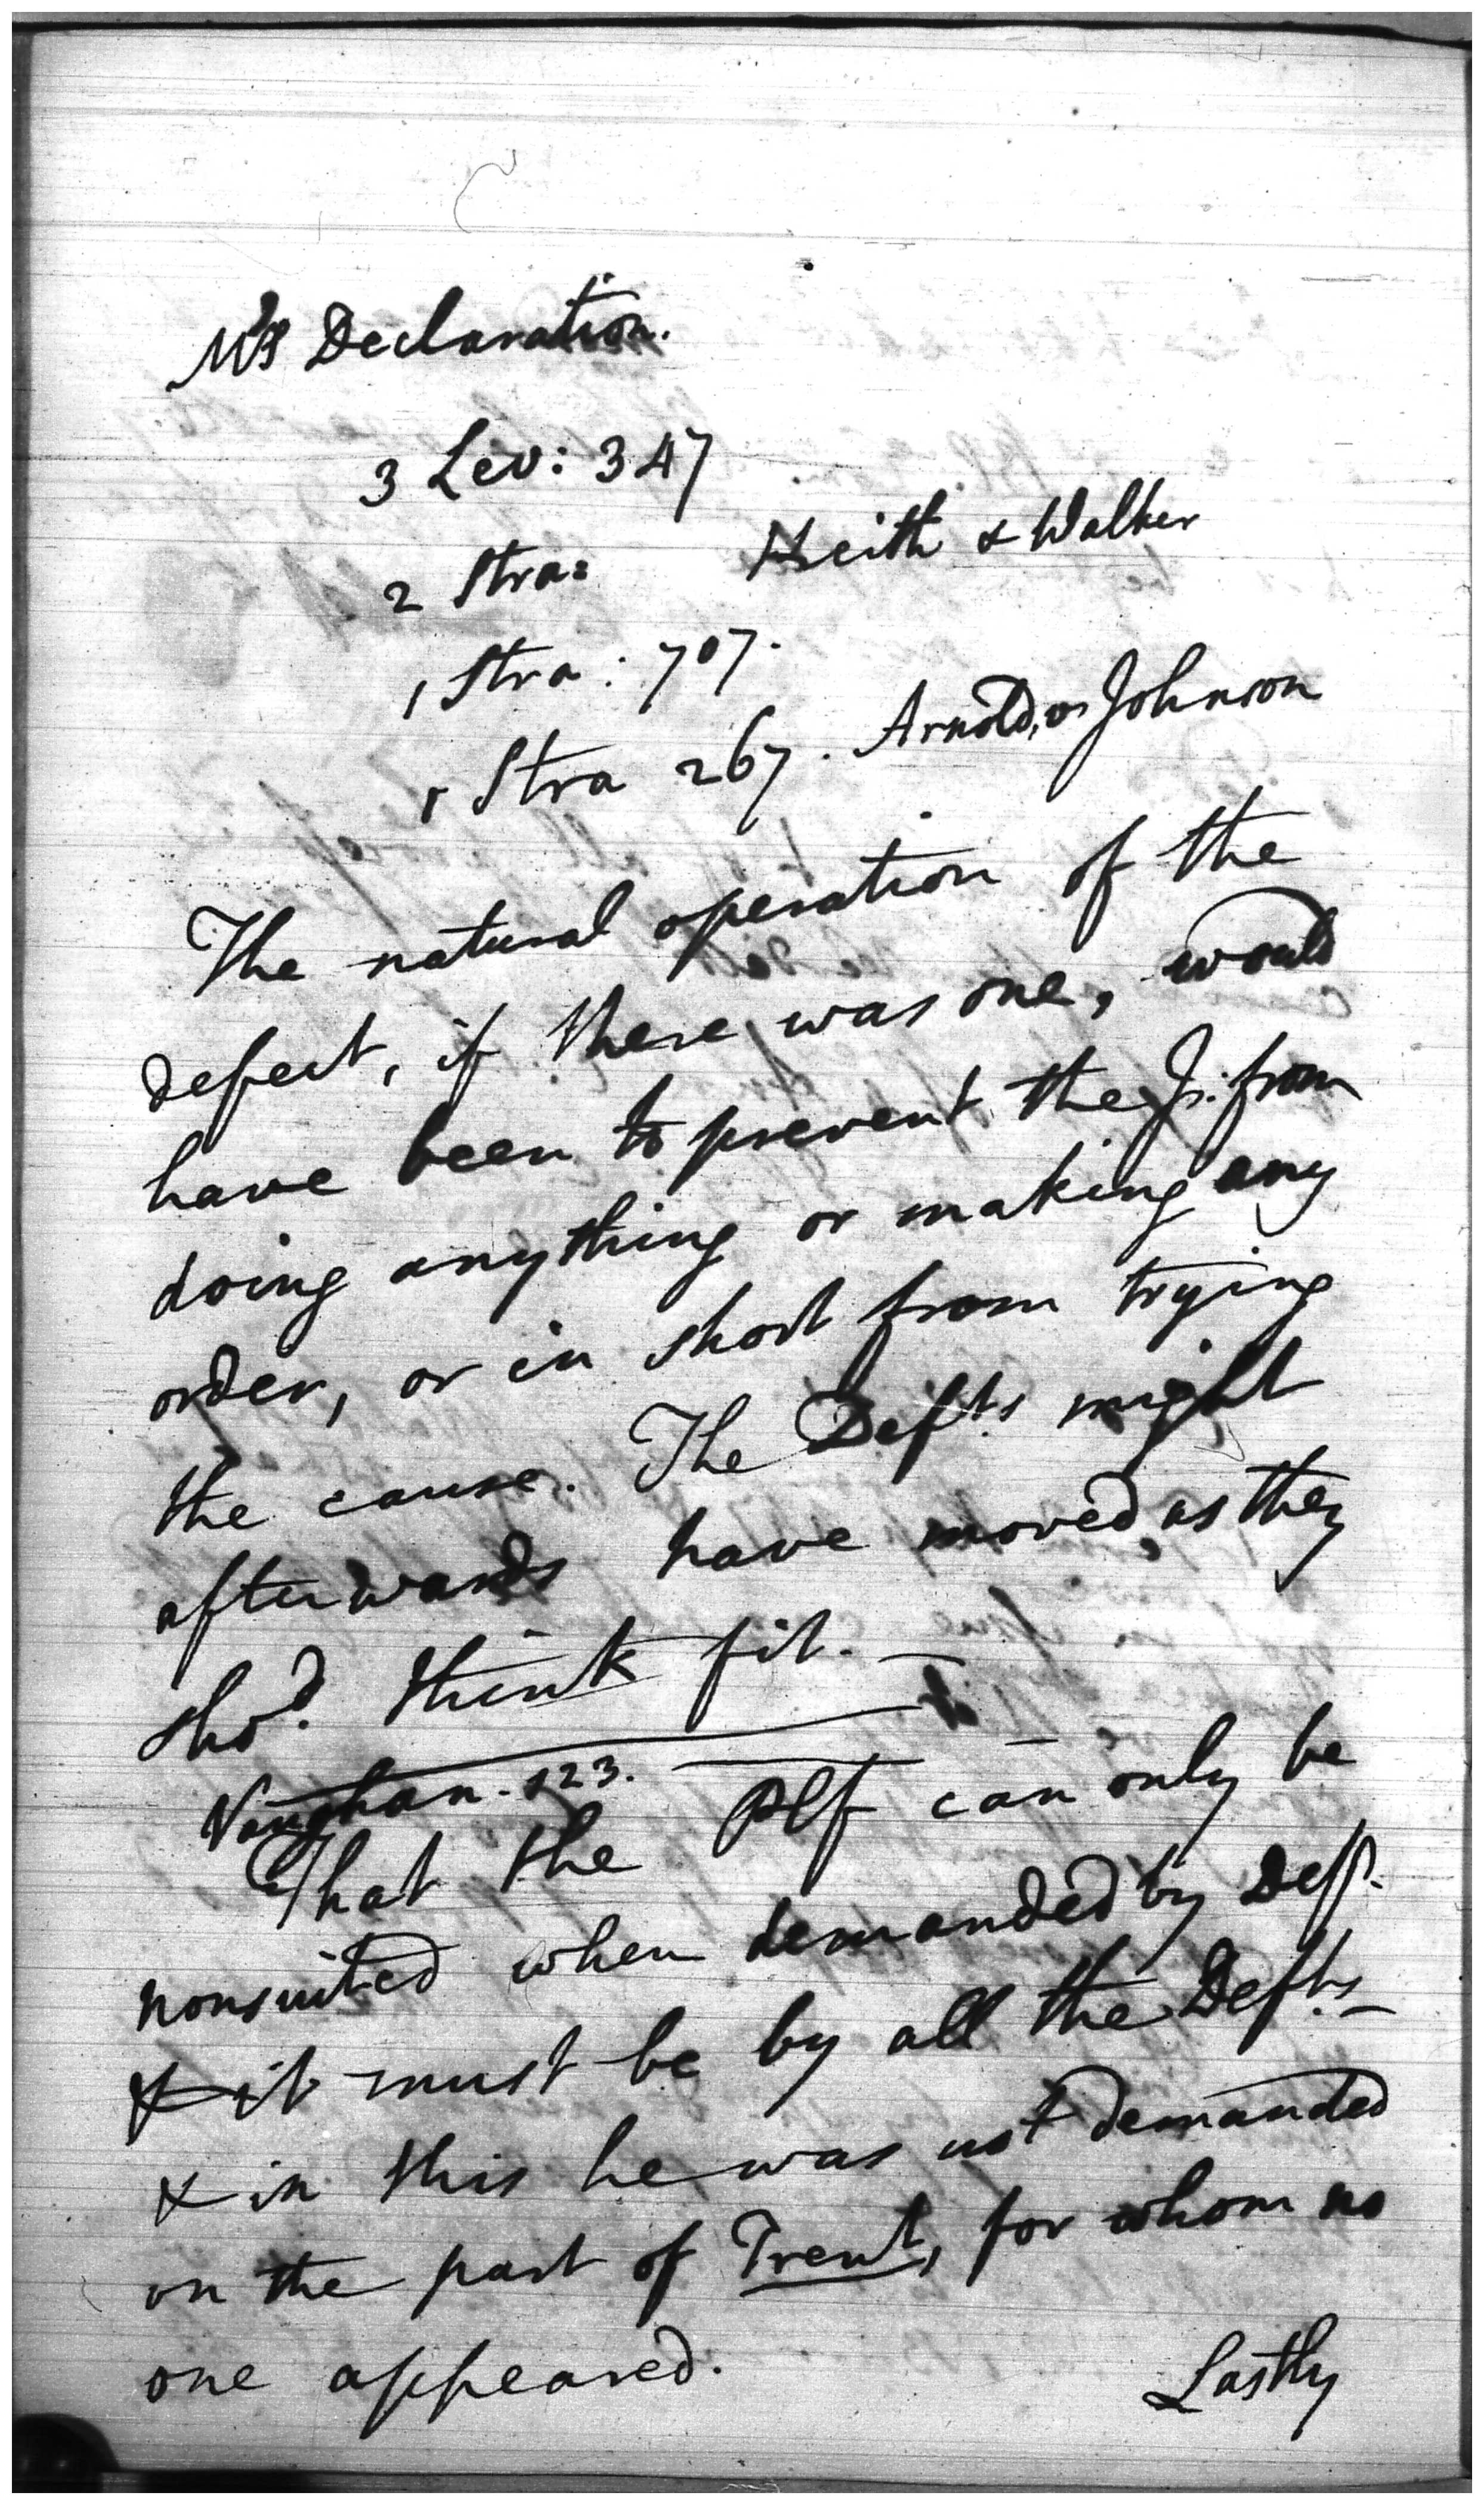 Declaration.
3 Lev: 347
2 Stra: Keith & Walker
1 Stra: 707.
1 Stra 267. Arnold, v. Johnson
The natural operation of the
defect, if there was one, would
have been to prevent the J: from
doing anything or making any
order, or in short from trying
the cause. The Defts might
afterwards have moved, as they
shod. think fit. —
Vaughan. 123.
That the Plf can only be
nonsuited when demanded by Deft.
& it must be by all the Defts. —
& in this he was not demanded
on the part of Trent, for whom no
one appeared.
Lastly